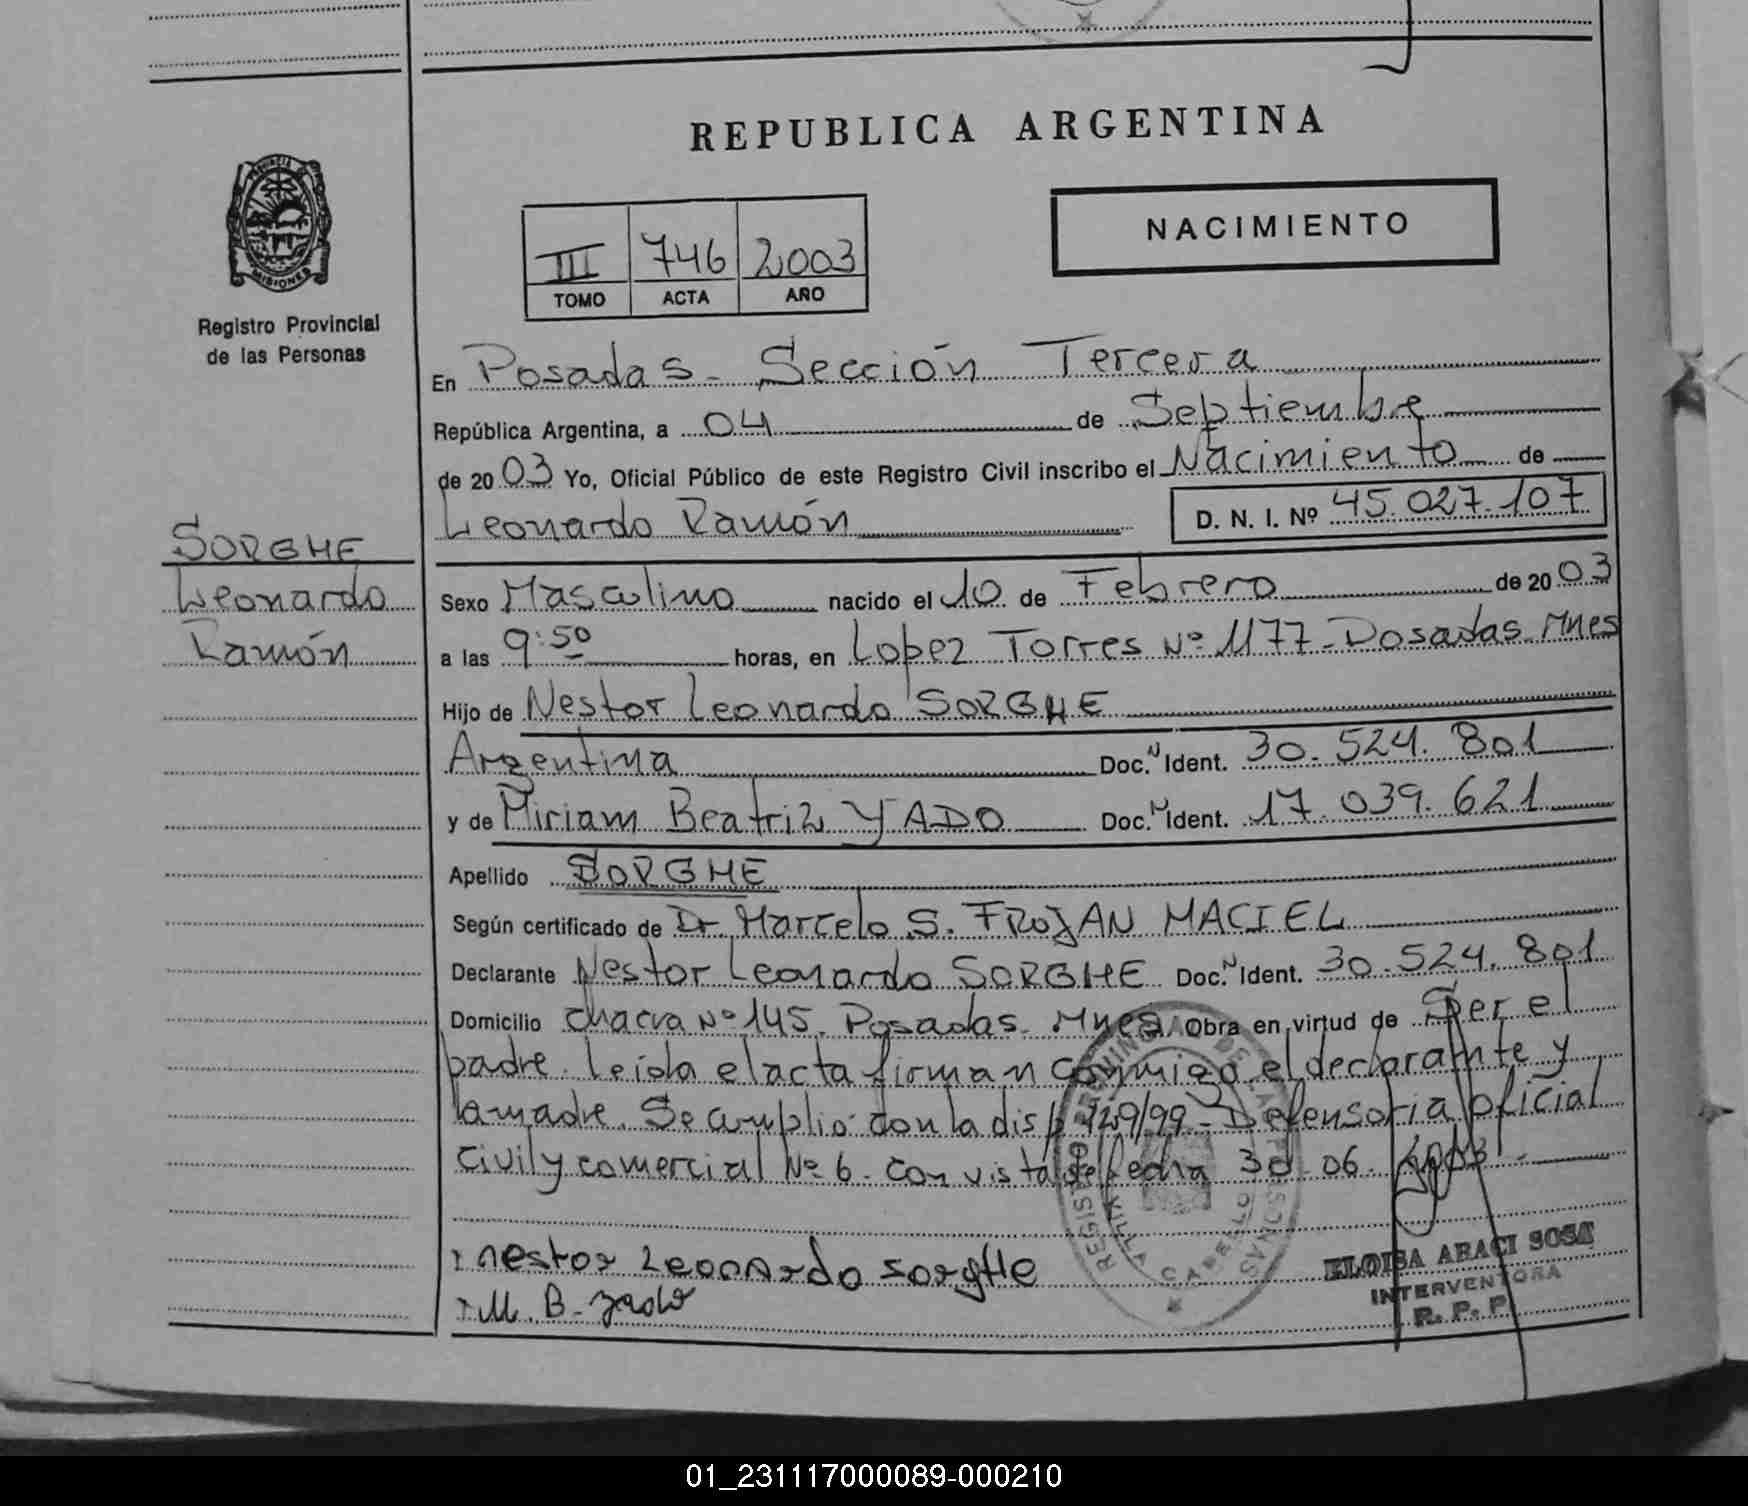 REPUBLICA ARGENTINA
PROVINCIA DE
MISIONES
Registro Provincial
de las Personas
III 746 2003
TOMO ACTA AÑO
NACIMIENTO
En Posadas - Sección Tercera
República Argentina, a 04 de Septiembre
de 2003 Yo, Oficial Público de este Registro Civil inscribo el Nacimiento de
Leonardo Ramón D. N. I. Nº 45.027.107
SORGHE
Leonardo
Ramón
Sexo Masculino nacido el 10 de Febrero de 2003
a las 9:50 horas, en Lopez Torres Nº 1177 - Posadas - Mnes
Hijo de Nestor Leonardo SORGHE
Argentina Doc. N Ident. 30.524.801
y de Miriam Beatriz YADO Doc. N Ident. 17.039.621
Apellido SORGHE
Según certificado de Dr. Marcelo S. FROJAN MACIEL
Declarante Nestor Leonardo SORGHE Doc. N Ident. 30.524.801
Domicilio chacra Nº 145. Posadas. Mnes. Obra en virtud de Ser el
padre. Leída el acta firman conmigo el declarante y
la madre. Se cumplió con la disp 129/99 - Defensoria oficial
civil y comercial Nº 6. con vista de fecha 30.06.
nestor Leonardo sorgHe
M. B. yado
ELOISA ARACI SOSA
INTERVENTORA
R. P. P.
01_231117000089-000210